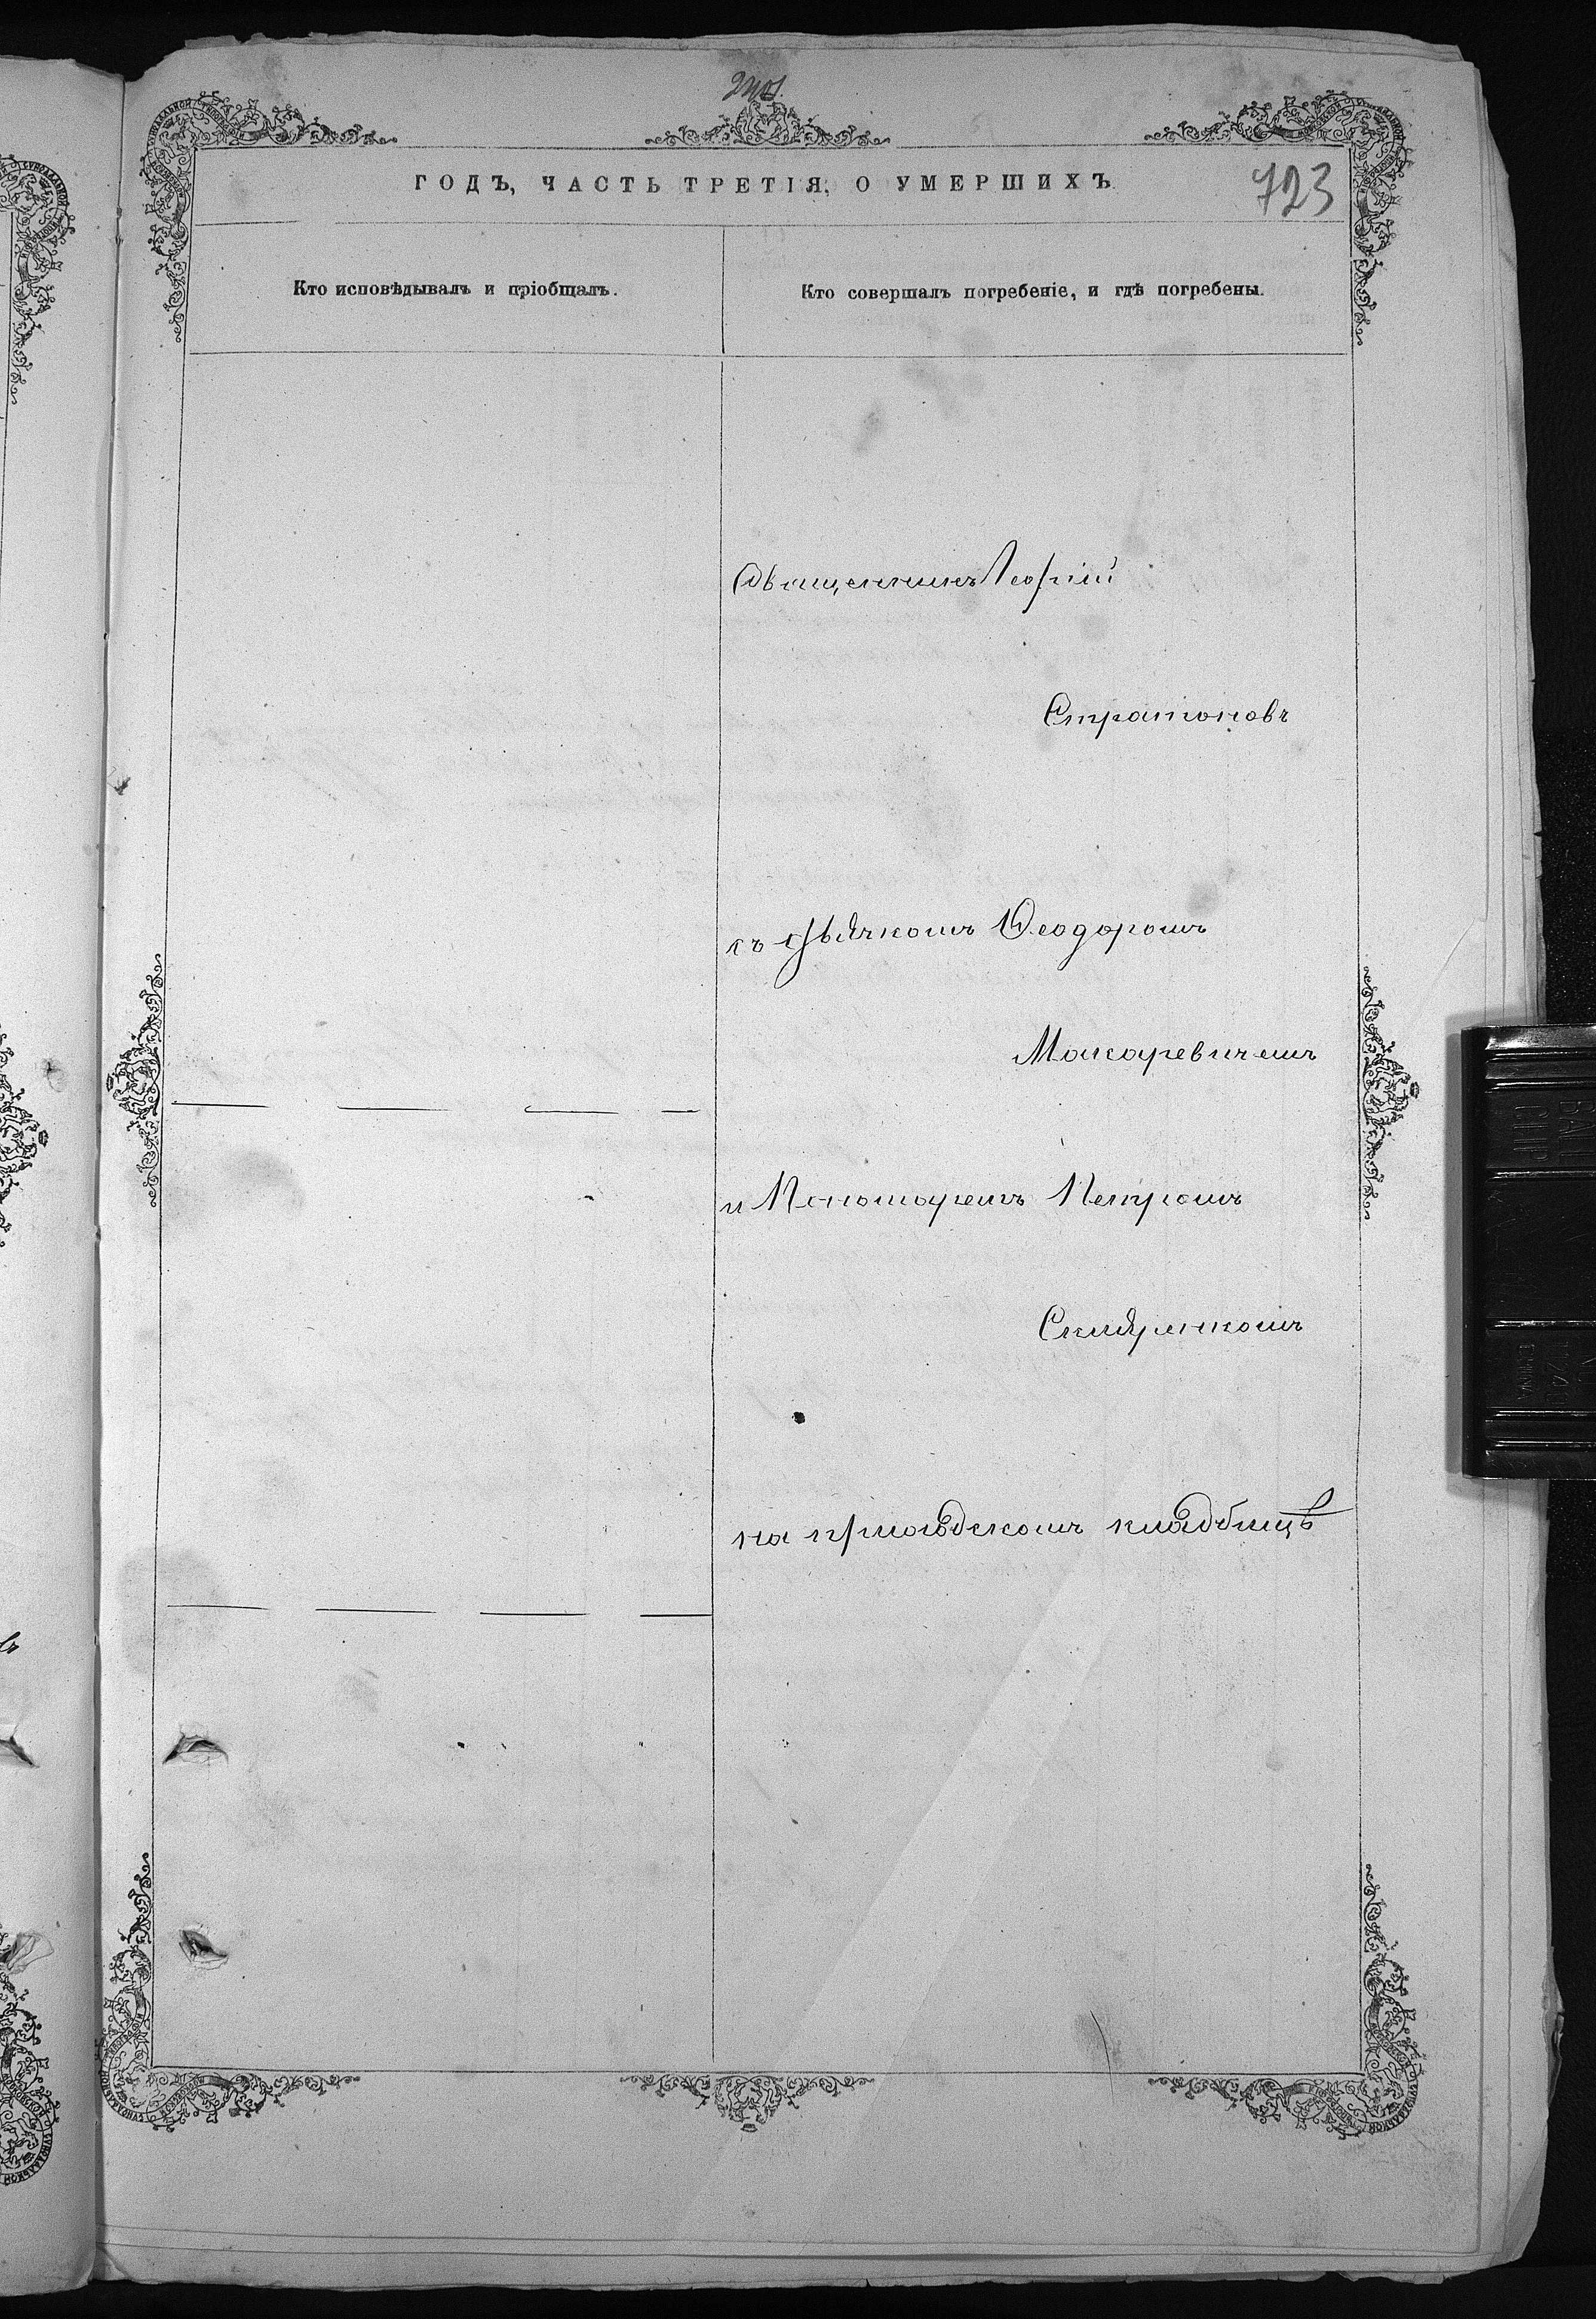 723
ГОДЪ, ЧАСТЬ ТРЕТІЯ, О УМЕРШИХЪ
Кто исповѣдывалъ и пріобщалъ.
Кто совершалъ погребеніе, и гдѣ погребены.
Священникъ Георгій
Стратоновъ
съ Дьячкомъ Ѳеодоромъ
Макаревичемъ
и Пономаремъ Петромъ
на приходскомъ кладбищѣ